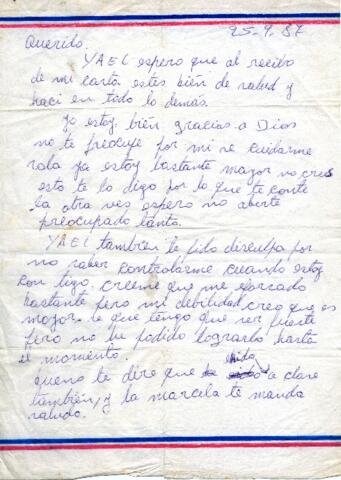 25-9-87
Querido.
YAEL espero que al recibo
de mi carta estes bién de salud y
haci en todo lo demás.
Yo estoy bién gracias a Dios
no te preocupe por mi se cuidarme
sola ya estoy bastante mayor no crees
esto te lo digo por lo que te conte
la otra ves espero no aberte
preocupado tanto.
YAEL tambien te pido disculpa por
no saber controlarme cuando estoy
con tigo. creeme que me esforcado
bastante pero mi debilidad creo que es
mayor. lo que tengo que ser fuerte
pero no he podido lograrlo hasta
el momento.
bueno te dire que a clare
también, y la marcela te manda
saludo.